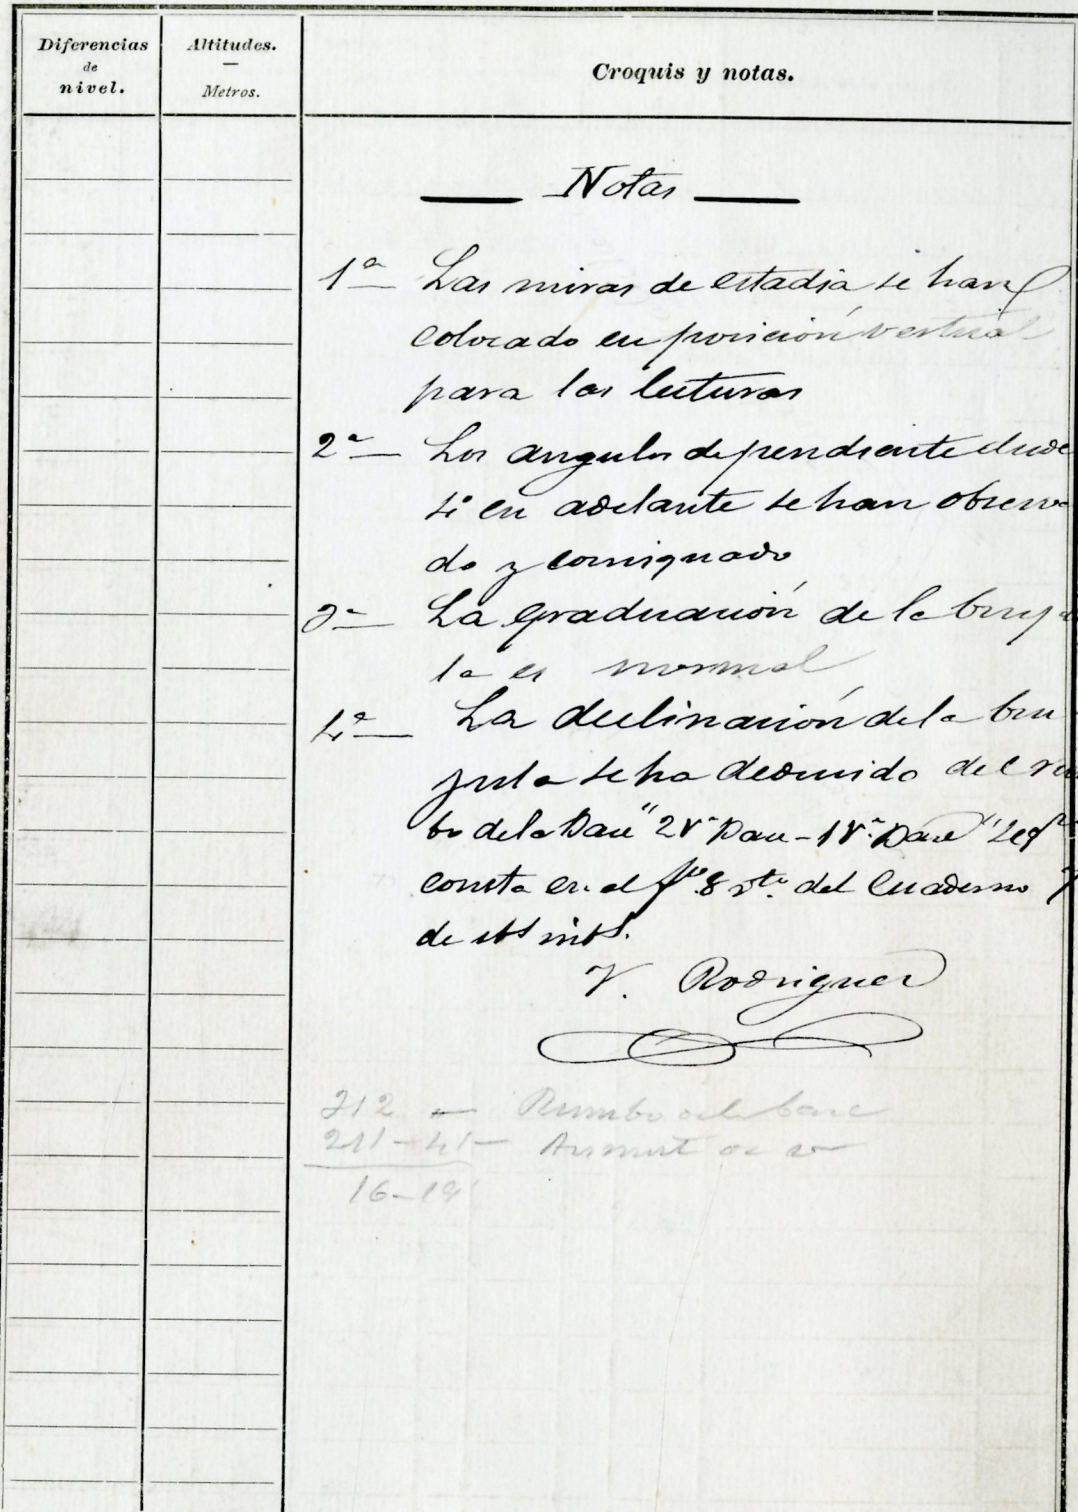 Diferencias
de
nivel.
Altitudes.
Metros.
Croquis y notas.
Notas
1ª Las miras de estadia se han
colocado en posición vertical
para las lecturas
2ª Los angulos de pendiente desde
si en adelante se han observa
do y consignado
3ª La graduación de la bruju
la es normal
4ª La declinación de la bru
jula se ha deducido del
bo de la Base "2 Vª Base - 1 Vª Base"
consta en el fº 8 vtº del Cuaderno 7
de
V. Rodriguez
212 - Rumbo de la base
16-19